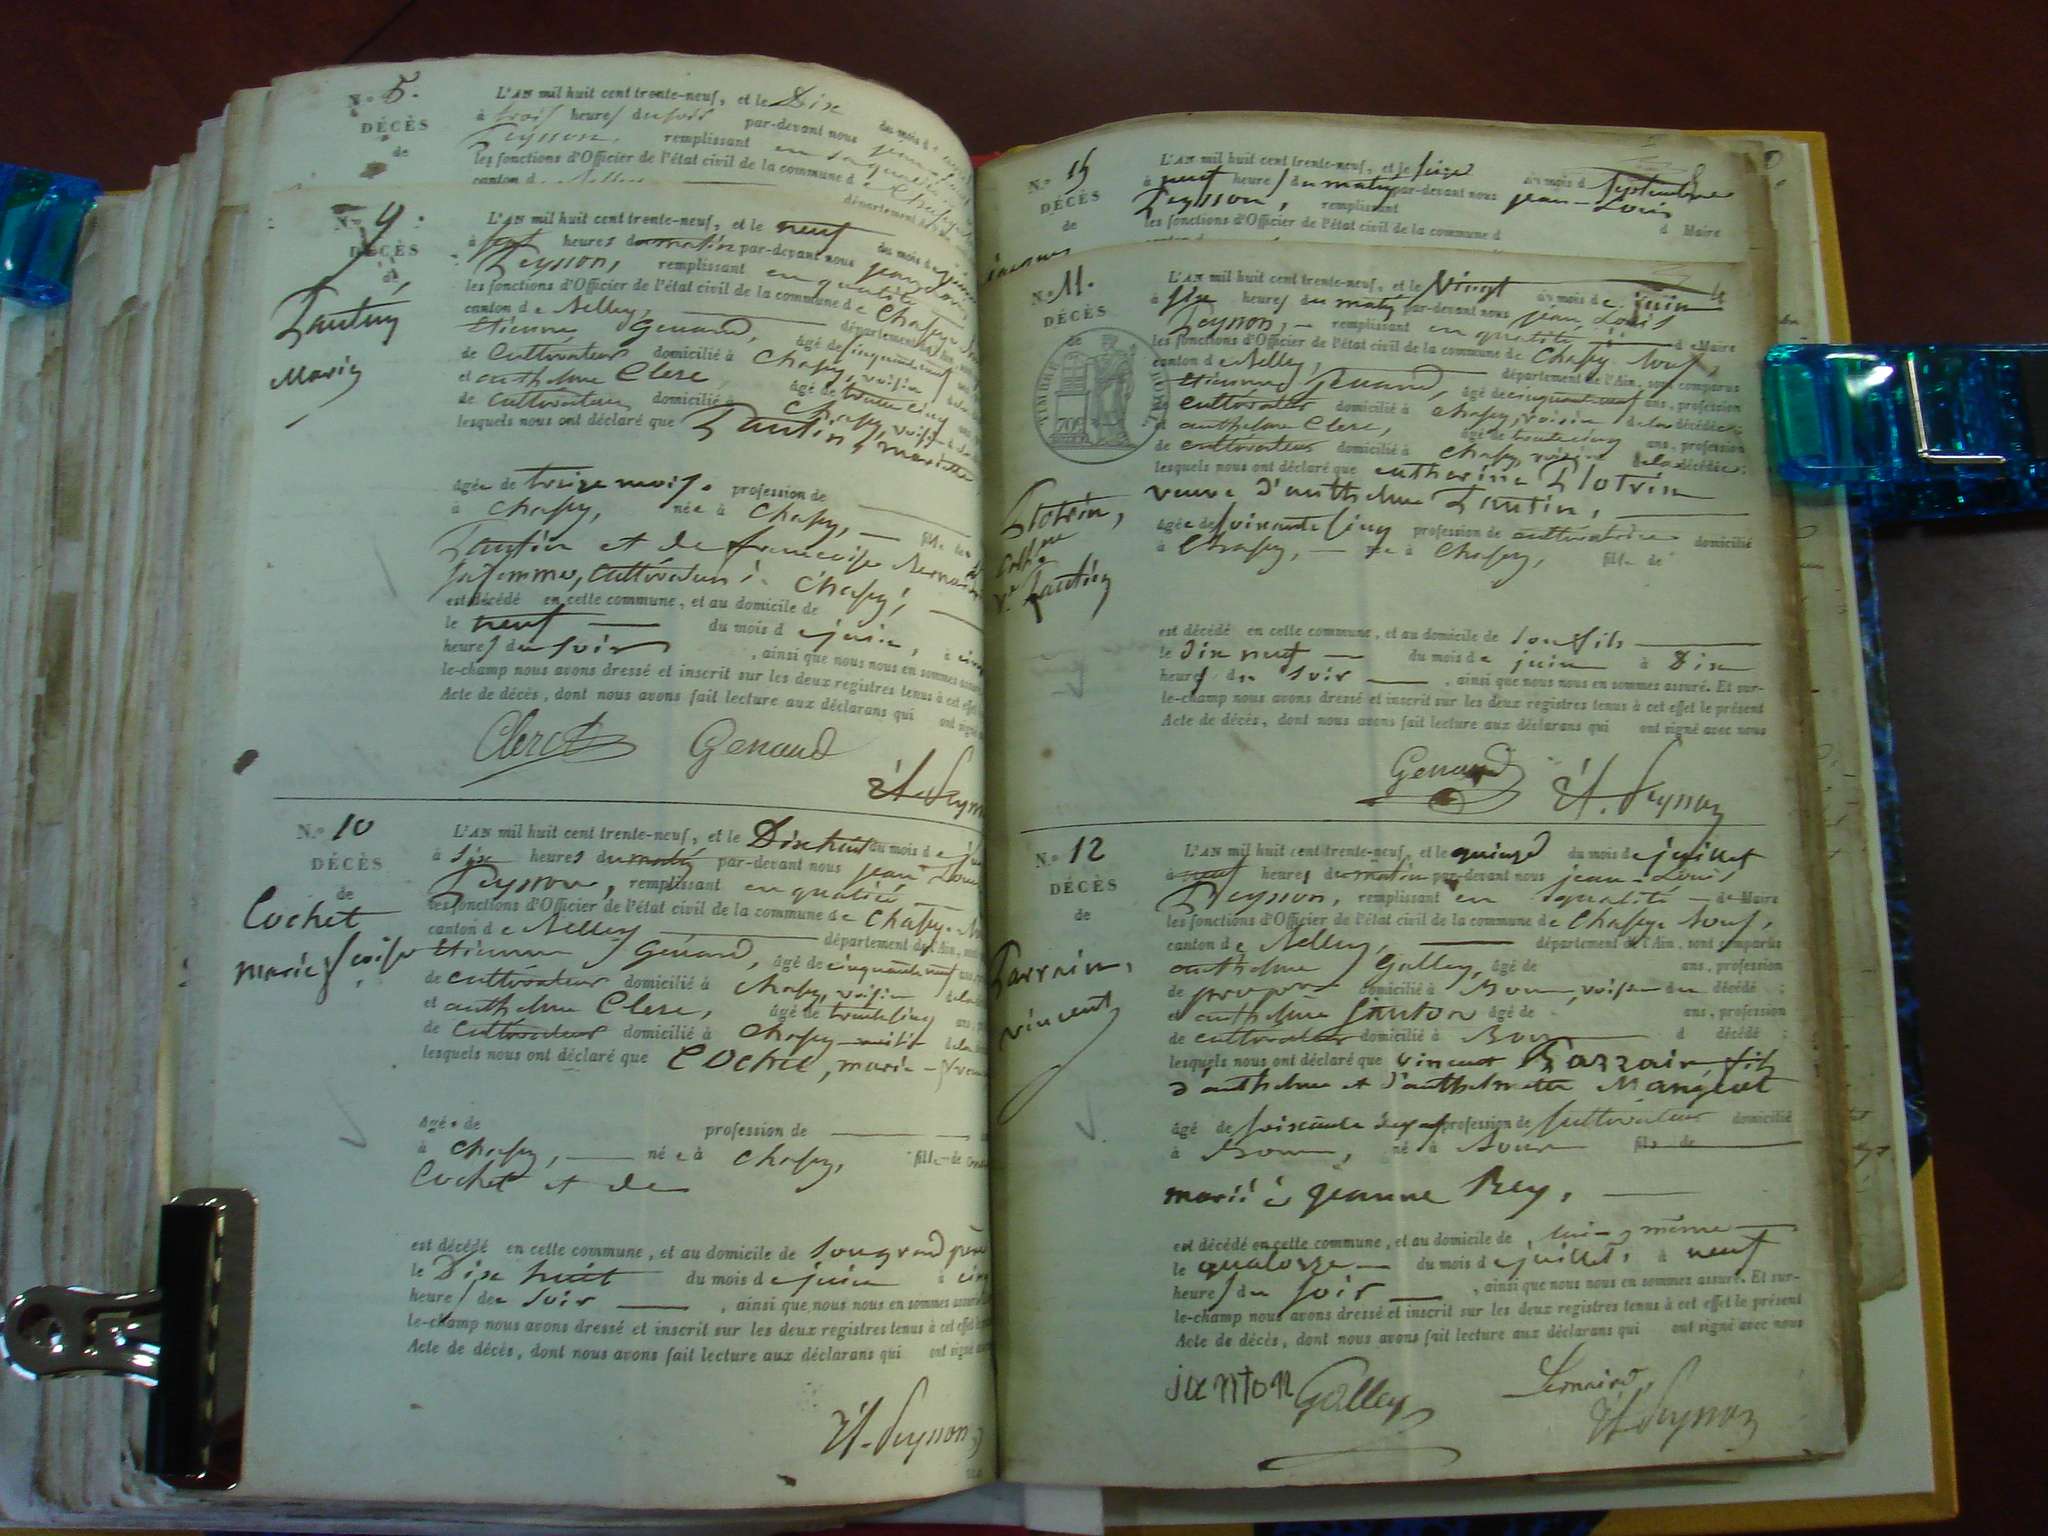 N.o 5.
DÉCÈS
de
L'AN mil huit cent trente-neuf, et le Dix du mois d
à trois heures du soir par-devant nous jean
Peysson, remplissant en sa qualité
les fonctions d'Officier de l'état civil de la commune d
canton d
département
N.o 9.
DÉCÈS
d
Pantin
Marie
L'AN mil huit cent trente-neuf, et le neuf du mois de
à sept heures du matin par-devant nous jean Louis
Peysson, remplissant en qualité
les fonctions d'Officier de l'état civil de la commune de Chasey
canton de Belley, département de l'Ain
Etienne Genand, âgé de cinquante neuf
de cultivateur domicilié à Chasey, voisin
et anthelme Clerc, âgé de trente cinq
de cultivateur domicilié à Chasey, voisin
lesquels nous ont déclaré que Pantin, mariette
âgée de treize mois. profession de
à Chasey, née à Chasey, fille de
Pantin et de francoise
sa femme, cultivateurs à Chasey,
est décédé en cette commune, et au domicile de
le neuf du mois de juin, à cinq
heures du soir , ainsi que nous nous en sommes assuré
le-champ nous avons dressé et inscrit sur les deux registres tenus à cet effet
Acte de décès, dont nous avons fait lecture aux déclarans qui ont signé
Clerc Genand
Peysson
N.o 10
DÉCÈS
de
Cochet
marie
L'AN mil huit cent trente-neuf, et le Dix huit du mois de
à six heures du matin par-devant nous jean Louis
Peysson, remplissant en qualité
les fonctions d'Officier de l'état civil de la commune de Chasey
canton de Belley département de l'Ain,
Etienne Genand, âgé de cinquante neuf ans
de cultivateur domicilié à Chasey, voisin de la
et anthelme Clerc, âgé de trente cinq ans
de cultivateur domicilié à Chasey voisin de la
lesquels nous ont déclaré que COchet, marie
âgée de profession de
à Chasey, née à Chasey, fille de
Cochet et de
est décédé en cette commune, et au domicile de son grand père
le Dix huit du mois de juin à cinq
heures de soir , ainsi que nous nous en sommes assuré
le-champ nous avons dressé et inscrit sur les deux registres tenus à cet effet
Acte de décès, dont nous avons fait lecture aux déclarans qui ont signé
Peysson
N.o 15
DÉCÈS
de
L'AN mil huit cent trente-neuf, et le seize du mois d septembre
à neuf heures du matin par-devant nous jean-Louis
Peysson, remplissant d Maire
les fonctions d'Officier de l'état civil de la commune d
N.o 11.
DÉCÈS
de
TIMBRE ROYAL
70c
Plotrin,
Cath.ne
V.e Pantin
L'AN mil huit cent trente-neuf, et le Vingt du mois de juin
à six heures du matin par-devant nous jean Louis
Peysson, remplissant en qualité de Maire
les fonctions d'Officier de l'état civil de la commune de Chasey
canton de Belley, département de l'Ain, sont comparus
Etienne Genand, âgé de cinquante neuf ans, profession
de cultivateur domicilié à Chasey, voisin de la décédée;
et anthelme Clerc, âgé de trente cinq ans, profession
de cultivateur domicilié à Chasey voisin de la décédée;
lesquels nous ont déclaré que catherine Plotrin
veuve d'anthelme Pantin,
âgée de soixante cinq profession de cultivatrice domicilié
à Chasey, née à Chasey, fille de
est décédé en cette commune, et au domicile de son fils
le Dix neuf du mois de juin à Dix
heures du soir , ainsi que nous nous en sommes assuré. Et sur-
le-champ nous avons dressé et inscrit sur les deux registres tenus à cet effet le présent
Acte de décès, dont nous avons fait lecture aux déclarans qui ont signé avec nous
Genand Peysson
N.o 12
DÉCÈS
de
Parrain,
vincent
L'AN mil huit cent trente-neuf, et le quinze du mois de juillet
à neuf heures du matin par-devant nous jean-Louis
Peysson, remplissant en qualité de Maire
les fonctions d'Officier de l'état civil de la commune de Chasey
canton de Belley, département de l'Ain, sont comparus
anthelme Galley, âgé de ans, profession
de domicilié à voisin du décédé;
et anthelme Janton âgé de ans, profession
de cultivateur domicilié à d décédé;
lesquels nous ont déclaré que vincent Parrain, fils
d'anthelme et d'anthelmette Mangeot
âgé de soixante profession de cultivateur domicilié
à né à fils de
marié à jeanne Rey,
est décédé en cette commune, et au domicile de lui même
le quatorze du mois de juillet, à neuf
heures du soir , ainsi que nous nous en sommes assuré. Et sur-
le-champ nous avons dressé et inscrit sur les deux registres tenus à cet effet le présent
Acte de décès, dont nous avons fait lecture aux déclarans qui ont signé avec nous
janton Galley
Peysson